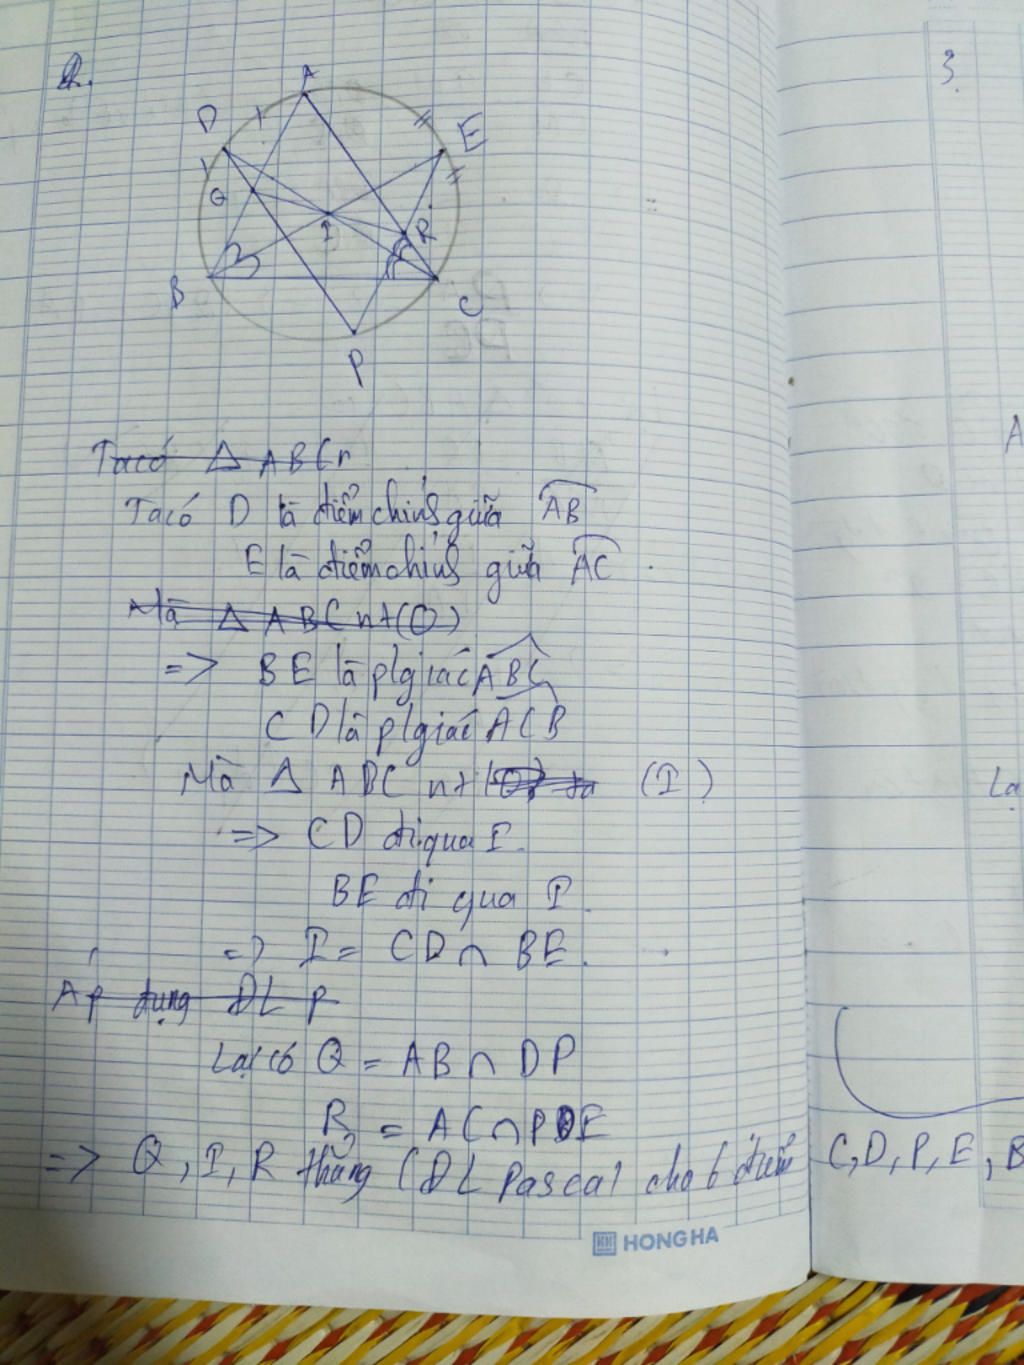 2.
3.
A
D
E
Q
I
R
B
C
P
Ta có △ ABC n
Ta có D là điểm chính giữa AB
E là điểm chính giữa AC.
Mà △ ABC nt (O)
=> BE là p/giác ABC
CD là p/giác ACB
Mà △ ABC nt (I)
=> CD đi qua I.
BE đi qua I.
=> I = CD ∩ BE.
Áp dụng ĐL P
Lại có Q = AB ∩ DP
R = AC ∩ PE
=> Q, I, R thẳng (ĐL Pascal cho 6 điểm C, D, P, E, B
A
Lạ
HONG HA